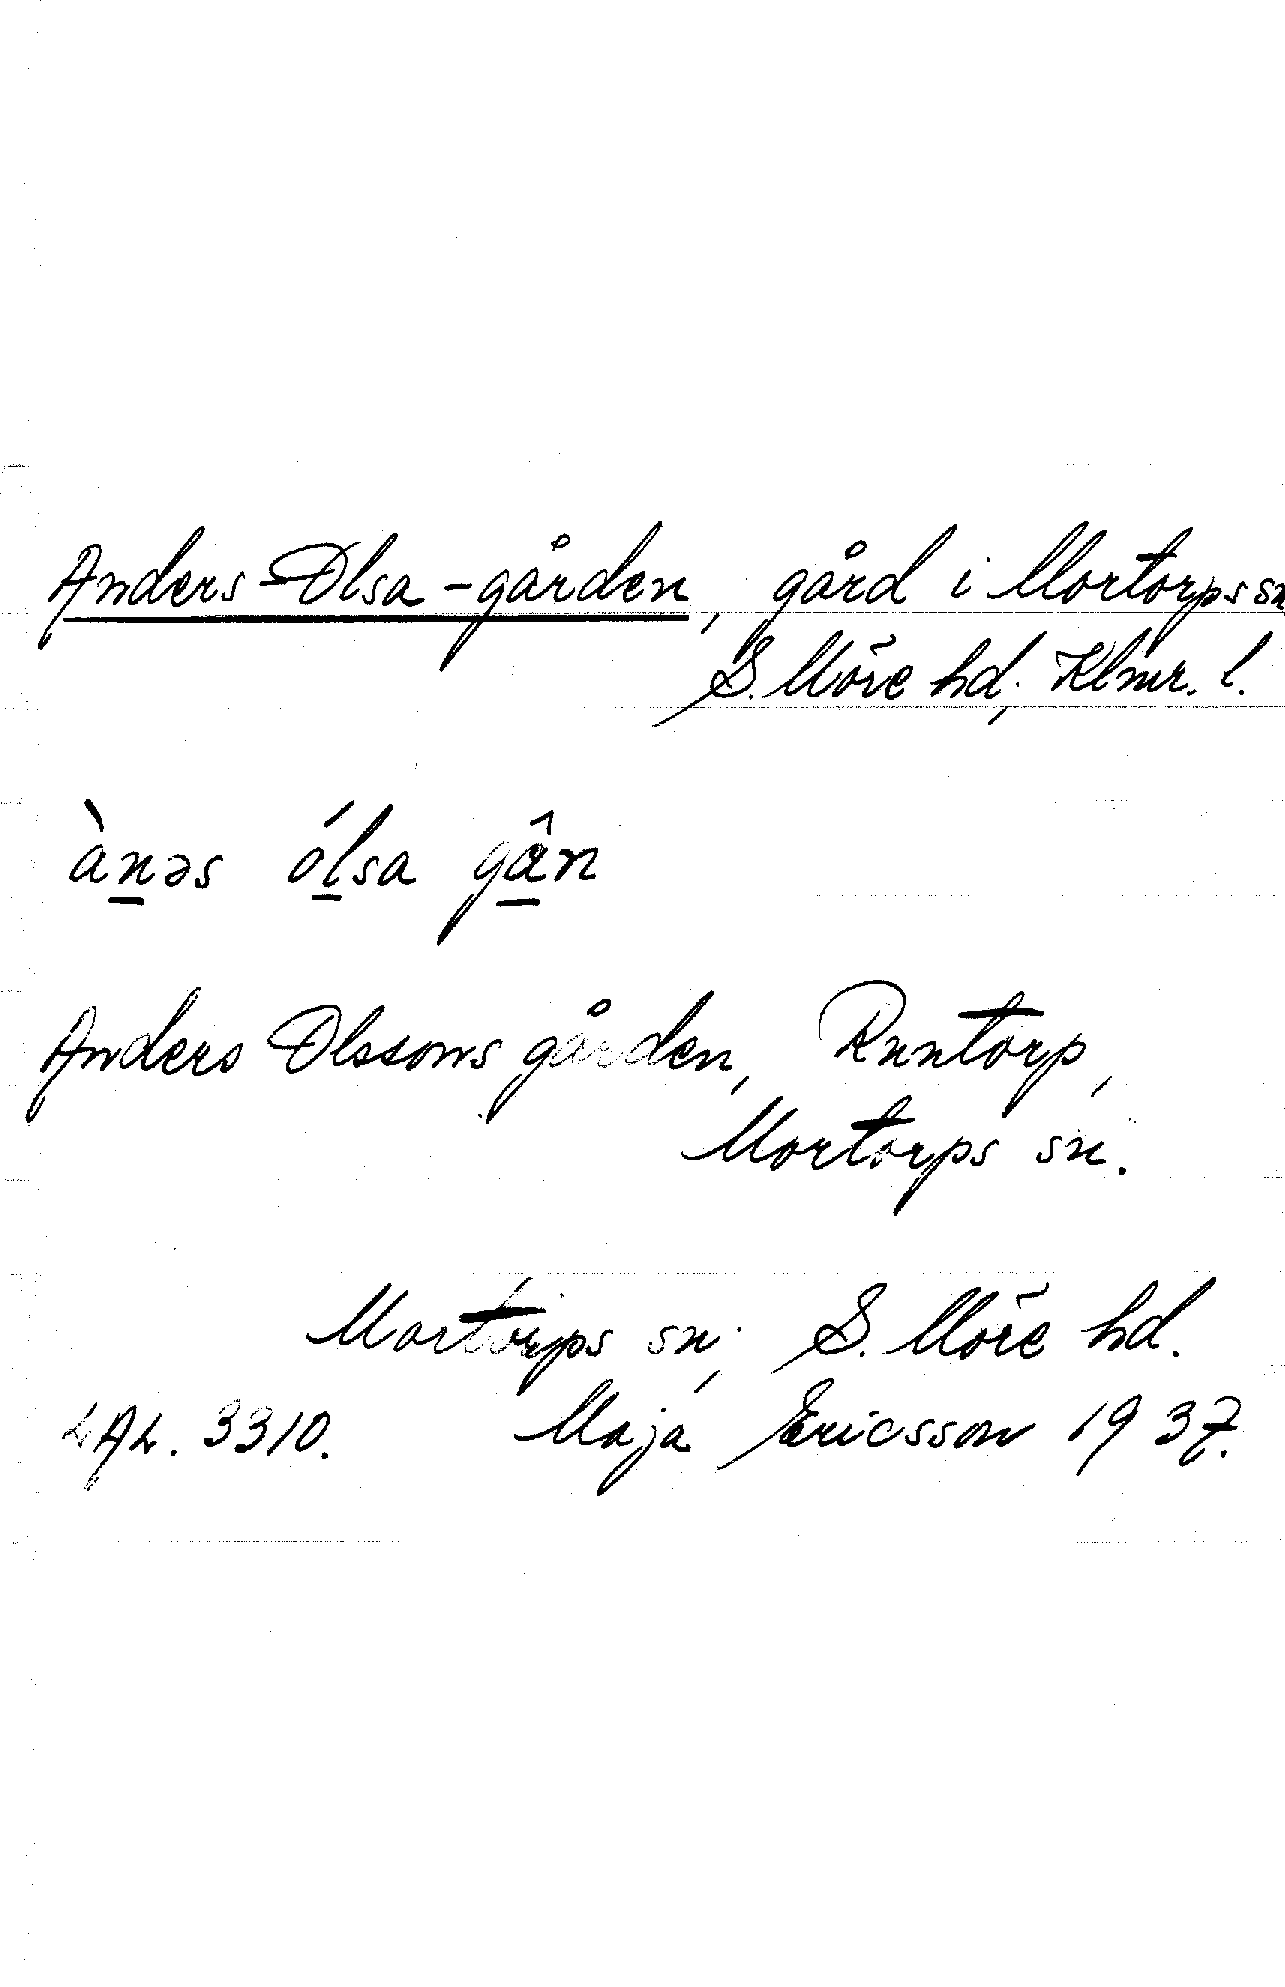 Anders-Olsa-gården, gård i Mortorps sn
S. Möre hd, Klmr. l.
ànəs ólsa gân
Anders Olssons gården, Runtorp,
Mortorps sn.
Mortorps sn, S. Möre hd.
LAL. 3310. Maja Ericsson 1937.